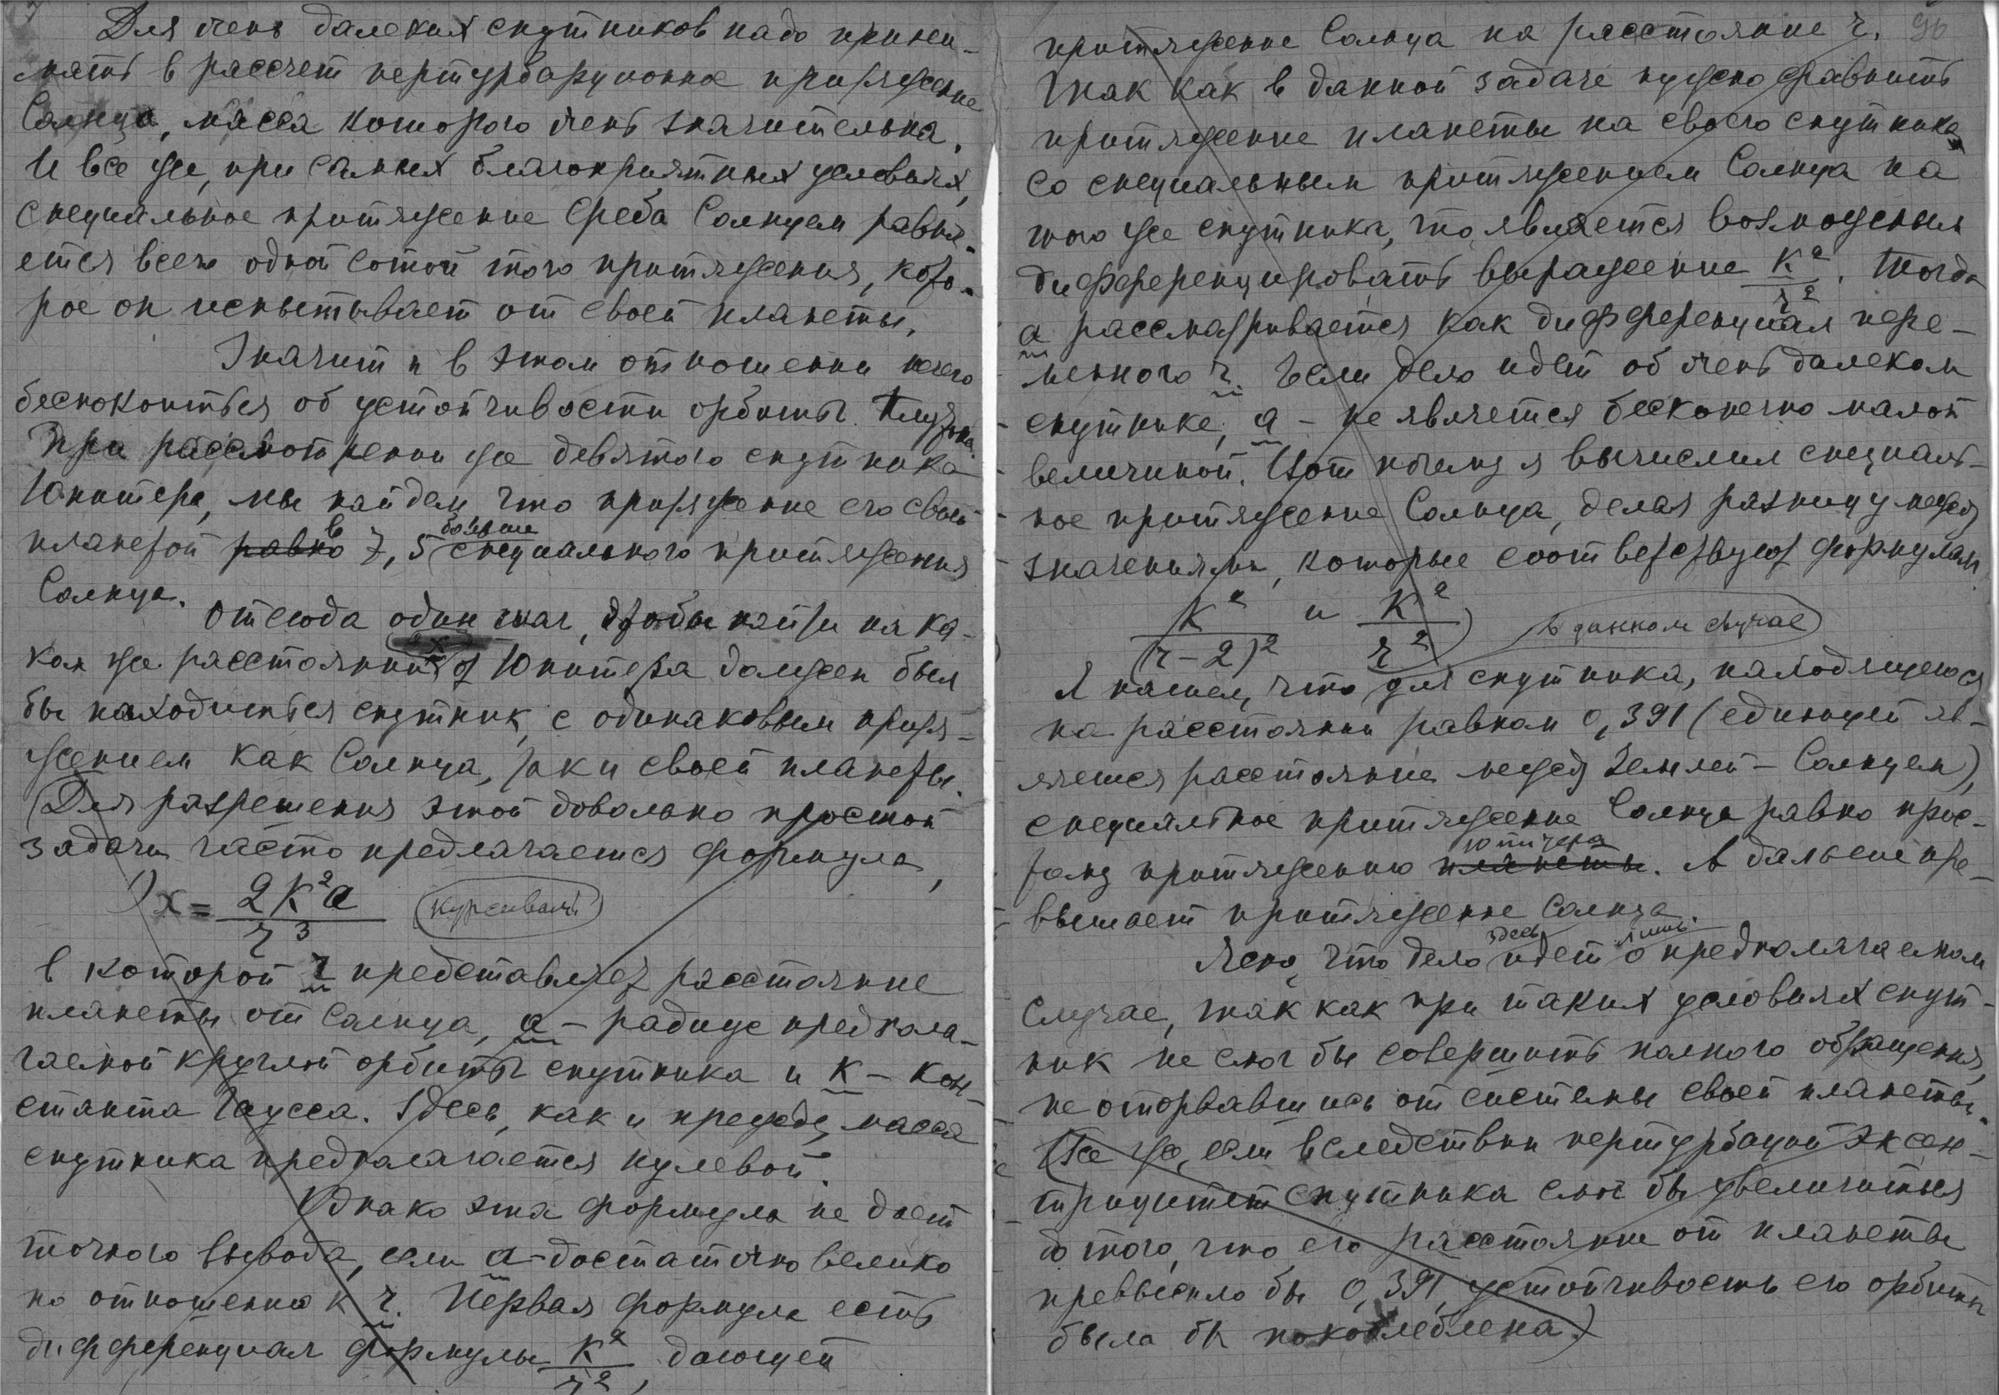 Для очень далеких спутников надо прини-
мать в рассчет пертурбационное притяжение
Солнца, масса которого очень значительна.
И все же, при самых благоприятных условиях,
специальное притяжение Феба Солнцем равня-
ется всего одной сотой того притяжения, кото-
рое он испытывает от своей планеты.
Значит и в этом отношении нечего
беспокоиться об устойчивости орбиты
При рассмотрении же девятого спутника
Юпитера, мы найдем что притяжение его своей
планетой равно в 7,5 больше специального притяжения
Солнца.
Отсюда один шаг, чтобы найти на ка-
ком же расстоянии от Юпитера должен был
бы находиться спутник, с одинаковым притя-
жением как Солнца, так и своей планеты.
(Для разрешения этой довольно простой
задачи часто предлагается формула,
1) x = 2K²a / r³ (курсивом)
в которой r представляет расстояние
планеты от Солнца, a – радиус предпола-
гаемой круглой орбиты спутника и K – кон-
станта Гаусса. Здесь, как и прежде, масса
спутника предполагается нулевой.
Однако эта формула не дает
точного вывода, если a достаточно велико
по отношению к r. Первая формула есть
дифференциал формулы K²/r², дающей
96
притяжение Солнца на расстояние r.
Так как в данной задаче нужно сравнить
притяжение планеты на своего спутника
со специальным притяжением Солнца на
того же спутника, то является возможным
дифференцировать выражение K²/r². Тогда
a рассматривается как дифференциал пере-
менного r. Если дело идет об очень далеком
спутнике, a – не является бесконечно малой
величиной. Вот почему я вычислил специаль-
ное притяжение Солнца, делая разницу между
значениями, которые соответствуют формулам
K²/(r-2)² и K²/r²)
в данном случае
Я нашел, что для спутника, находящегося
на расстоянии равном 0,391 (единицей яв-
ляется расстояние между Землей – Солнцем),
специальное притяжение Солнца равно прос-
тому притяжению планеты Юпитера. А дальше пре-
вышает притяжение Солнца.
Ясно, что дело здесь идет лишь о предполагаемом
случае, так как при таких условиях спут-
ник не смог бы совершить полного обращения,
не оторвавшись от системы своей планеты.
(Все же, если вследствии пертурбаций эксцен-
трицитет спутника смог бы увеличиться
до того, что его расстояние от планеты
превысило бы 0,391, устойчивость его орбиты
была бы поколеблена.)